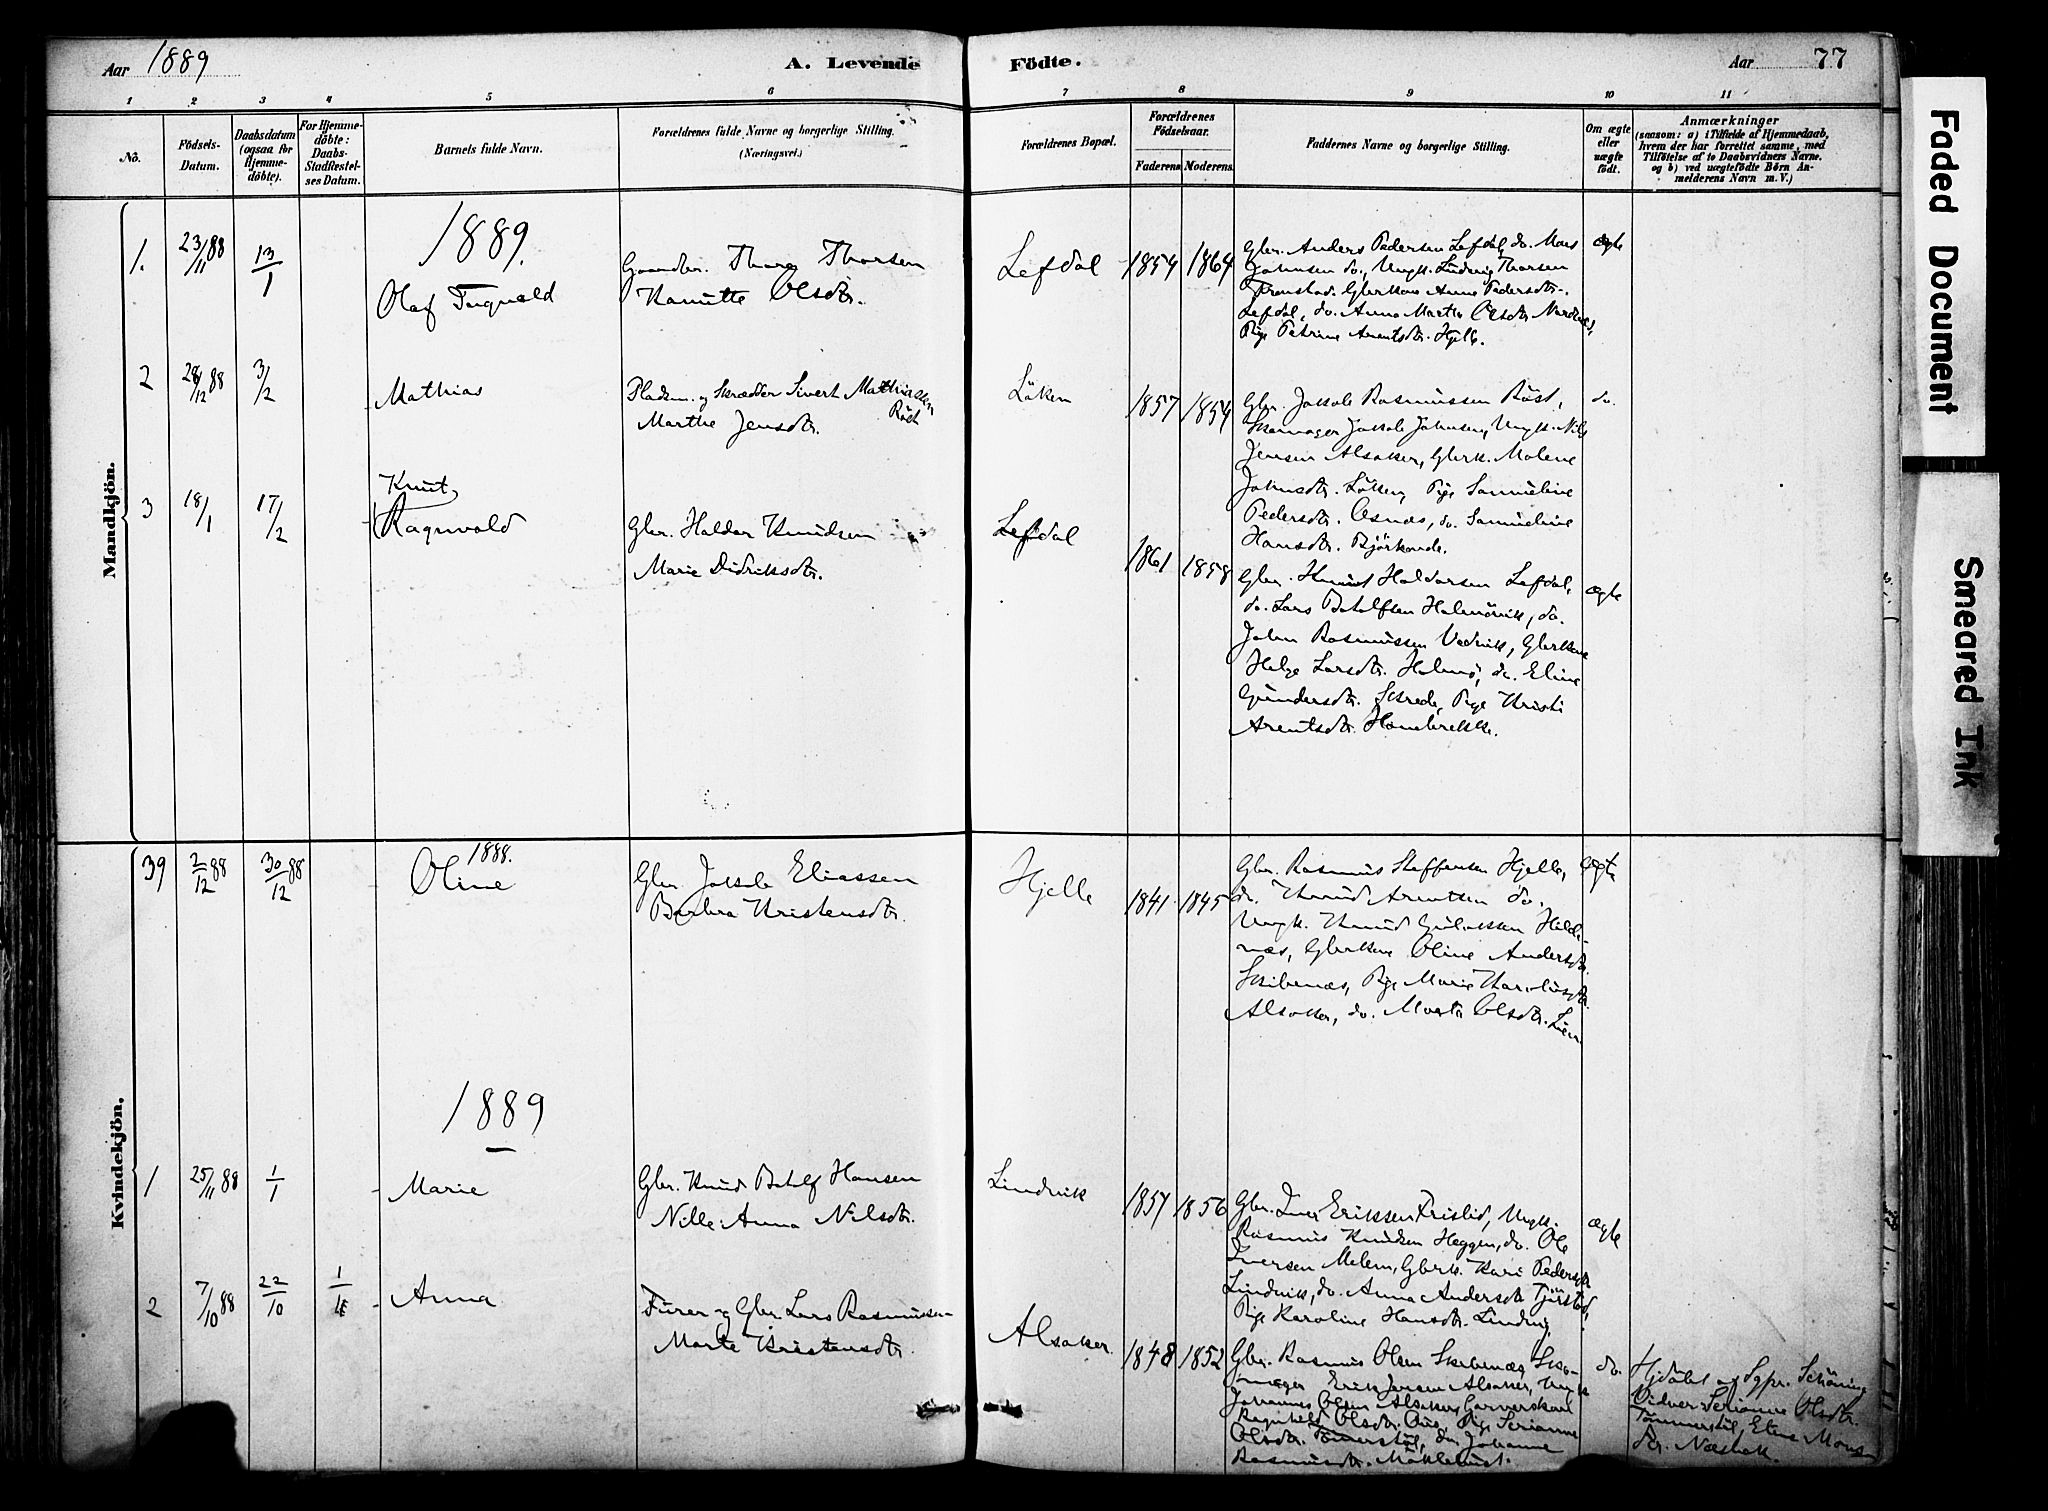 Aar 1889
A. Levende Födte.
Aar 77
1 2 3 4 5 6 7 8 9 10 11
No.
Födsels-
Datum.
Daabsdatum
(ogsaa for
Hjemme-
döbte).
For Hjemme-
döbte:
Daabs-
Stadfæstel-
ses Datum.
Barnets fulde Navn.
Forældrenes fulde Navne og borgerlige Stilling.
(Næringsvei.)
Forældrenes Bopæl.
Forældrenes
Födselsaar.
Faderens
Moderens
Faddernes Navne og borgerlige Stilling.
Om ægte
eller
uægte
födt.
Anmærkninger
(saasom: a) i Tilfælde af Hjemmedaab,
hvem der har forrettet samme, med
Tilföielse af to Daabsvidners Navne.
og b) ved uægtefödte Börn An-
melderens Navn m. V.)
Mandkjön.
1889.
1. 23/11 88 13/1
Olaf
Thorsen
Olsdtr.
Lefdal
1854 1864
Gbr. Anders Pedersen Lefdal, do. Mons
Johnsen do., Ungk. Ludvig Thorsen
Anne Pedersdtr.
Lefdal, do. Anna Martha Olsdtr.
Pige Petrine Arentsdtr. Hjelle.
ægte
2 28/12 88 3/2
Mathias
Pladsm. og Skrædder Sivert Mathiassen
Röst
Marthe Jensdtr.
Löken
1857 1854
Gbr. Jakob Rasmussen Röst,
Skomager Jakob Johnsen, Ungk. Nils
Jensen Alsaker, Gbrk. Malene
Johnsdtr. Löken, Pige Samueline
Pedersdtr. Osnæs, do. Samueline
Hansdtr.
do.
3 18/1 17/2
Knut
Ragnvald
Gbr. Haldor Knudsen
Marie Didriksdtr.
Lefdal
1861 1858
Gbr. Knud Haldorsen Lefdal,
do. Lars Botolfsen Holmövik, do.
John Rasmussen Vedvik,
Helge Larsdtr. Holmö, do. Eline
Gundersdtr. Skrede, Pige Kristi
Arentsdtr.
ægte
Kvindekjön.
1888.
39 2/12 88 30/12 88
Oline
Gbr. Jakob Eliassen
Barbra Kristensdtr.
Hjelle
1841 1845
Gbr. Rasmus Steffensen Hjelle,
do. Knud Arentsen do.,
Ungk. Knud
Oline Andersdtr.
Skibenæs, Pige Marie
Alsaker, do. Marta Olsdtr.
ægte
1889
1 25/11 88 1/1
Marie
Gbr. Knud Botolf Hansen
Nille Anna Nilsdtr.
Lindvik
1857 1856
Gbr. Iver Eriksen Tristid, Ungk.
Rasmus Knudsen Heggen, do. Ole
Iversen Melem, Gbrk. Kari Pedersdtr.
Lindvik, do. Anna Andersdtr.
Pige Karoline Hansdtr. Lindvig.
ægte
2 7/10 88 22/10
Anna
Furer og Gbr. Lars Rasmussen
Marte Kristensdtr.
Alsaker.
1848 1852
Gbr. Rasmus Olsen Skibenæs, Sko-
mager Erik Jensen Alsaker, Ungk
Johannes Olsen Alsaker,
Ragnhild Olsdtr. Pige Serianne
Olsdtr. do. Johanne
Rasmusdtr.
do.
Hjdöbt af Sgpr. Schöning
Vidner: Serianne Olsdtr.
Eline Mons
dtr.
Faded Document
Smeared Ink